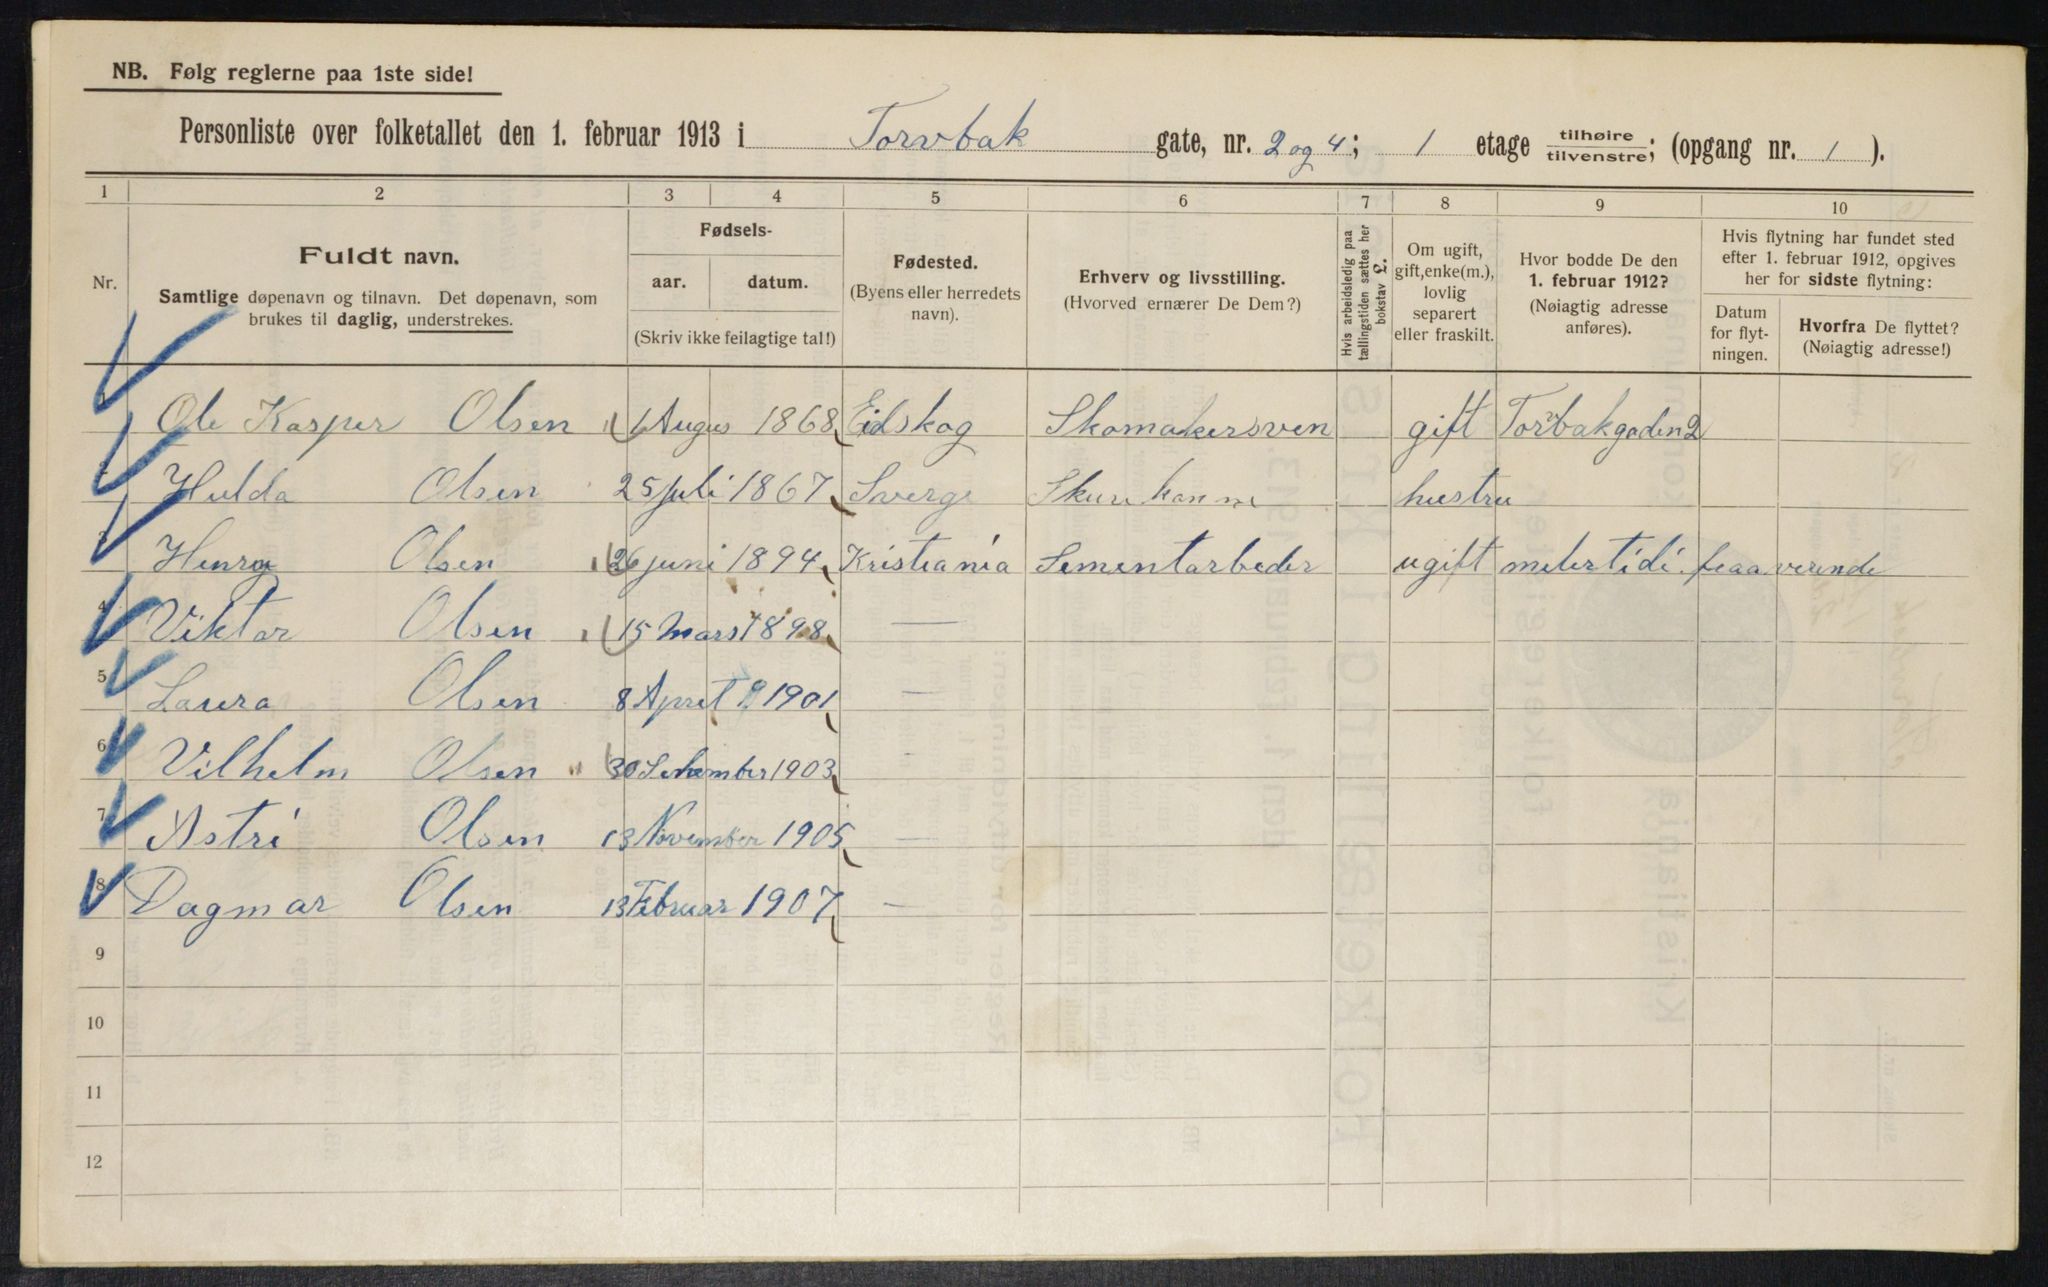 NB. Følg reglerne paa 1ste side!
Personliste over folketallet den 1. februar 1913 i Torvbak gate, nr. 2 og 4; 1 etage tilhøire/tilvenstre; (opgang nr. 1).
1 2 3 4 5 6 7 8 9 10
Nr.
Fuldt navn.
Samtlige døpenavn og tilnavn. Det døpenavn, som
brukes til daglig, understrekes.
Fødsels-
aar. datum.
(Skriv ikke feilagtige tal!)
Fødested.
(Byens eller herredets
navn).
Erhverv og livsstilling.
(Hvorved ernærer De Dem?)
Hvis arbeidsledig paa
tællingstiden sættes her
bokstav L.
Om ugift,
gift, enke(m.),
lovlig
separert
eller fraskilt.
Hvor bodde De den
1. februar 1912?
(Nøiagtig adresse
anføres).
Hvis flytning har fundet sted
efter 1. februar 1912, opgives
her for sidste flytning:
Datum
for flyt-
ningen.
Hvorfra De flyttet?
(Nøiagtig adresse!)
1 Ole Kasper Olsen 1 Augus 1868 Eidskog Skomakersven gift Torvbakgaden 2
2 Hulda Olsen 25 juli 1867 Sverge hustru
3 Henry Olsen 26 juni 1894 Kristiania Sementarbeder ugift
4 Viktor Olsen 15 Mars 1898 —
5 Laura Olsen 8 April 1901 —
6 Vilhelm Olsen 30 1903 -
7 Astri Olsen 13 November 1905 —
8 Dagmar Olsen 13 Februar 1907 —
9
10
11
12